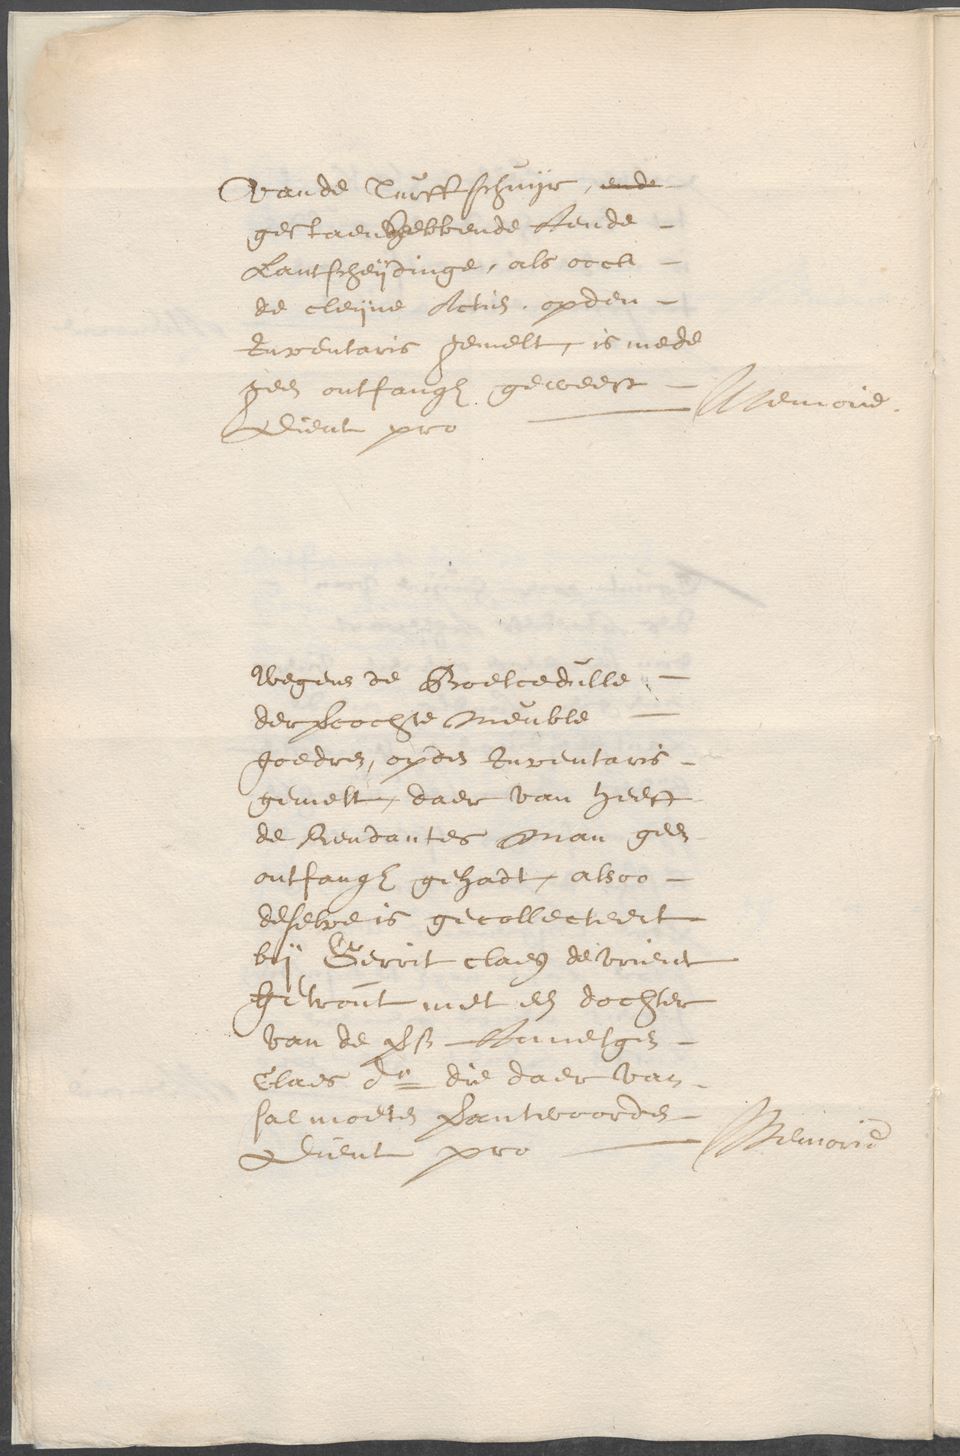 Vande Turffschuijr, ende
gestaen hebbende Aende
Lantscheijdinge, als oock
de cleijne Actien opden
Inventaris gemelt, is mede
geen ontfangh geweest
Dient pro Memorie.
Wegens de Boelcedulle
der vercochte Meuble
goedren, opden Inventaris
gemelt, daer van heeft
de Rendantes Man geen
ontfangh gehadt, alsoo
deselve is gecollecteert
bij Gerrit claesz de vrient
Getrout met een dochter
van de
Claes dr die daer van
sal moeten verantwoorden
Dient pro Memorie